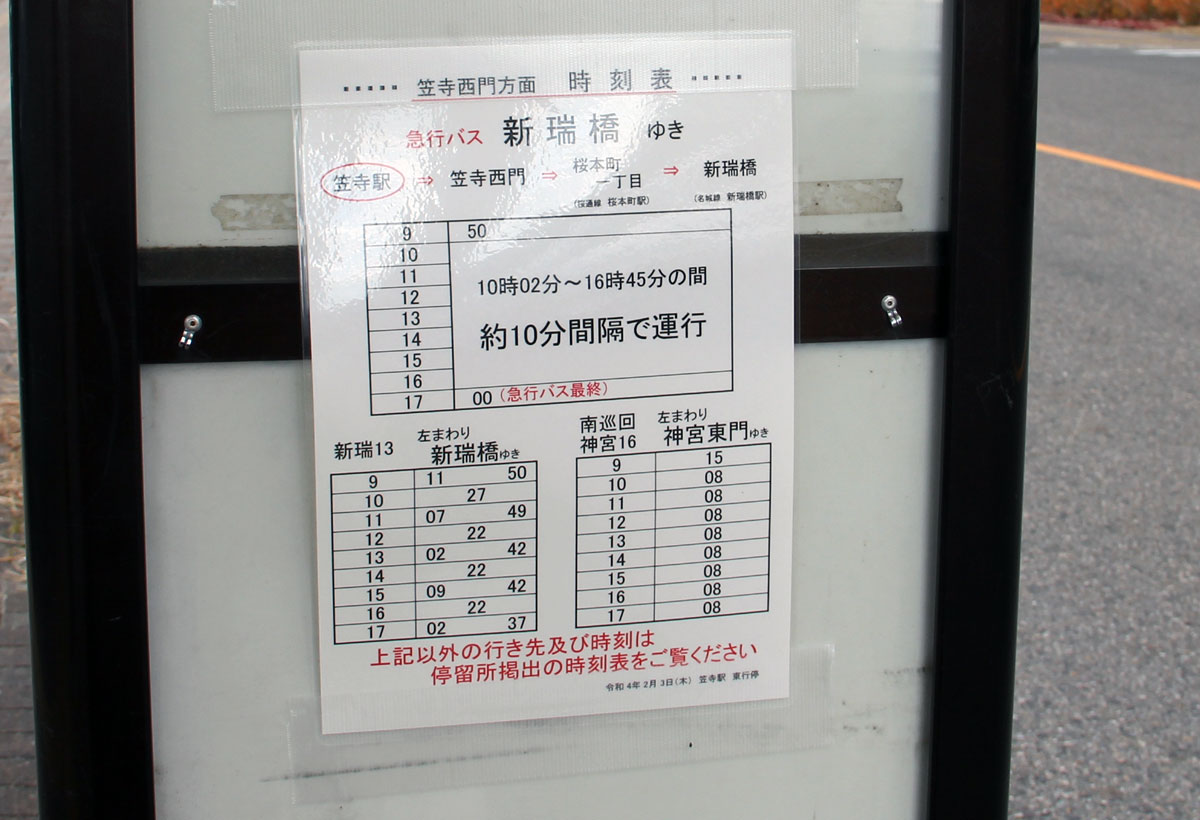 笠寺西門方面 時刻表
急行バス 新瑞橋 ゆき
笠寺駅 ⇒ 笠寺西門 ⇒ 桜本町一丁目 ⇒ 新瑞橋
(桜通線 桜本町駅) (名城線 新瑞橋駅)
9 50
10
11
12
13
14
15
16
17 00 (急行バス最終)
10時02分~16時45分の間
約10分間隔で運行
新瑞13 左まわり 新瑞橋ゆき
9 11 50
10 27
11 07 49
12 22
13 02 42
14 22
15 09 42
16 22
17 02 37
南巡回 神宮16 左まわり 神宮東門ゆき
9 15
10 08
11 08
12 08
13 08
14 08
15 08
16 08
17 08
上記以外の行き先及び時刻は
停留所掲出の時刻表をご覧ください
令和4年2月3日(木) 笠寺駅 東行停